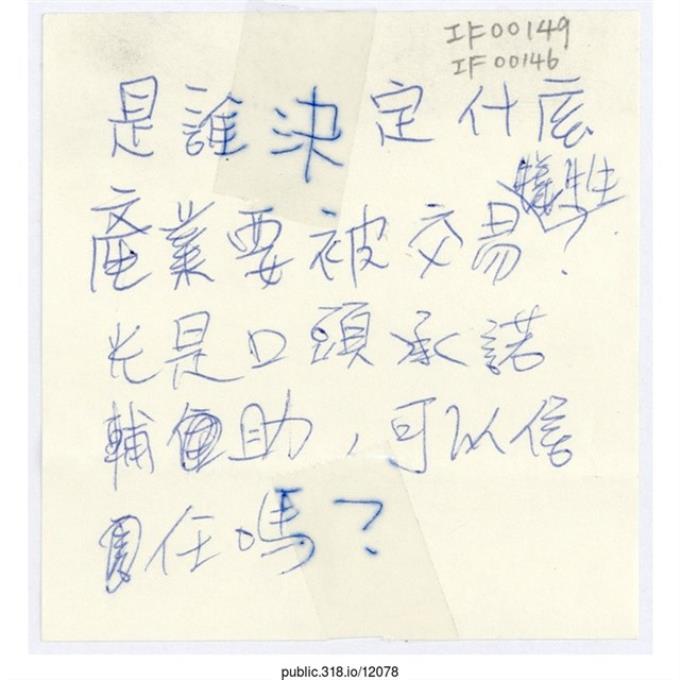 IF00149
IF00146
是誰決定什底
產業要被交易犧牲?
光是口頭承諾
輔助,可以信
任嗎?
public.318.io/12078